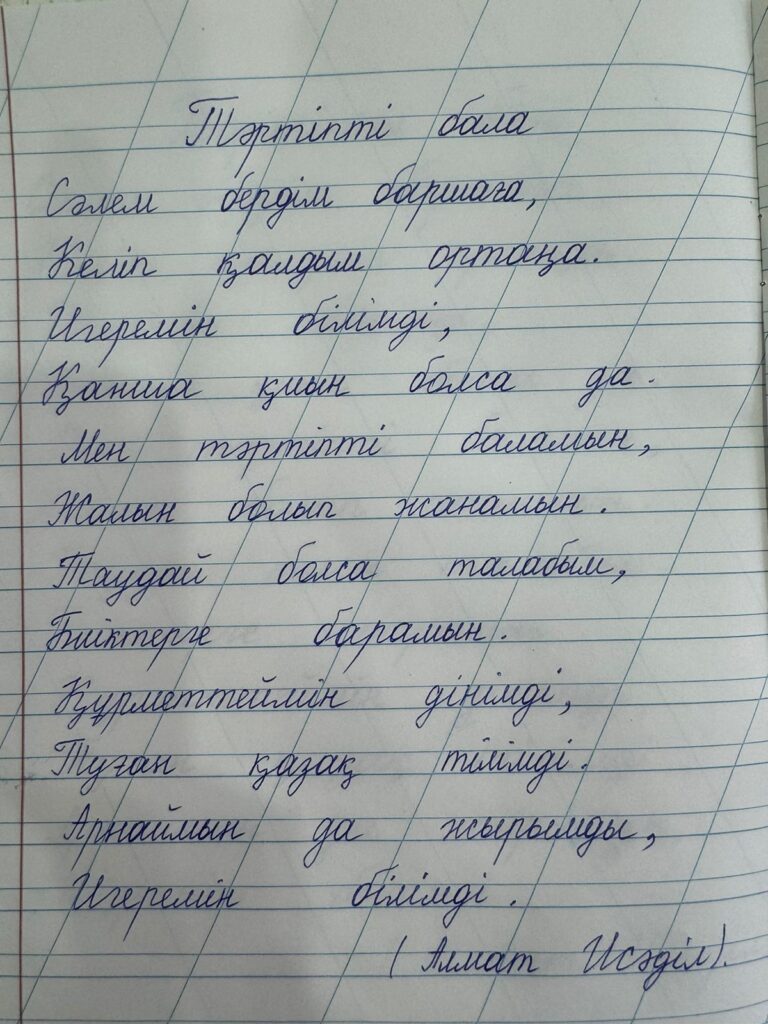 Тәртіпті бала
Сәлем бердім баршаға,
Келіп қалдым ортаңа.
Игеремін білімді,
Қанша қиын болса да.
Мен тәртіпті баламын,
Жалын болып жанамын.
Таудай болса талабым,
Биіктерге барамын.
Құрметтеймін дінімді,
Туған қазақ тілімді.
Арнаймын да жырымды,
Игеремін білімді.
(Алмат Исәділ).